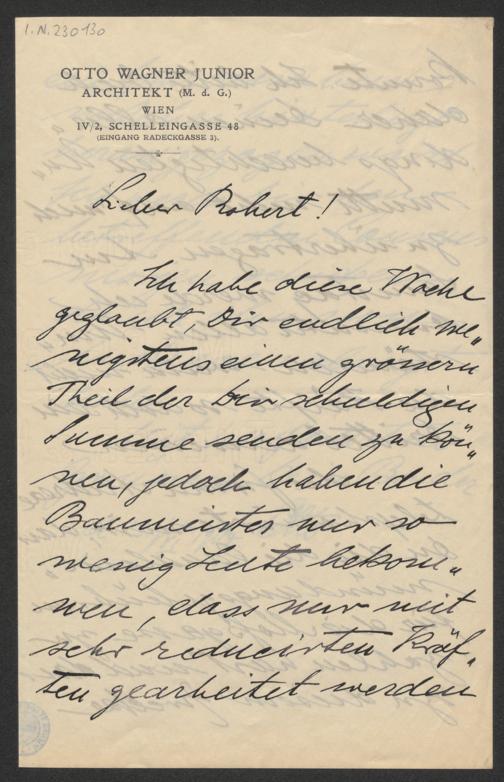 I.N. 230130
OTTO WAGNER JUNIOR
ARCHITEKT (M. d. G.)
WIEN
IV/2, SCHELLEINGASSE 48
(EINGANG RADECKGASSE 3).
Lieber Robert!
Ich habe diese Woche
geglaubt, Dir endlich we„
nigstens einen grössern
Theil der Dir schuldigen
Summe senden zu kön„
nen, jedoch haben die
Baumeister nur so
wenig Leute bekom„
men, dass nur mit
sehr reducirten Kräf„
ten gearbeitet werden